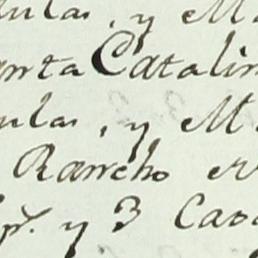 ulas, y M
anta Catalin
ulas, y M
Rancho e
y 3 Cava